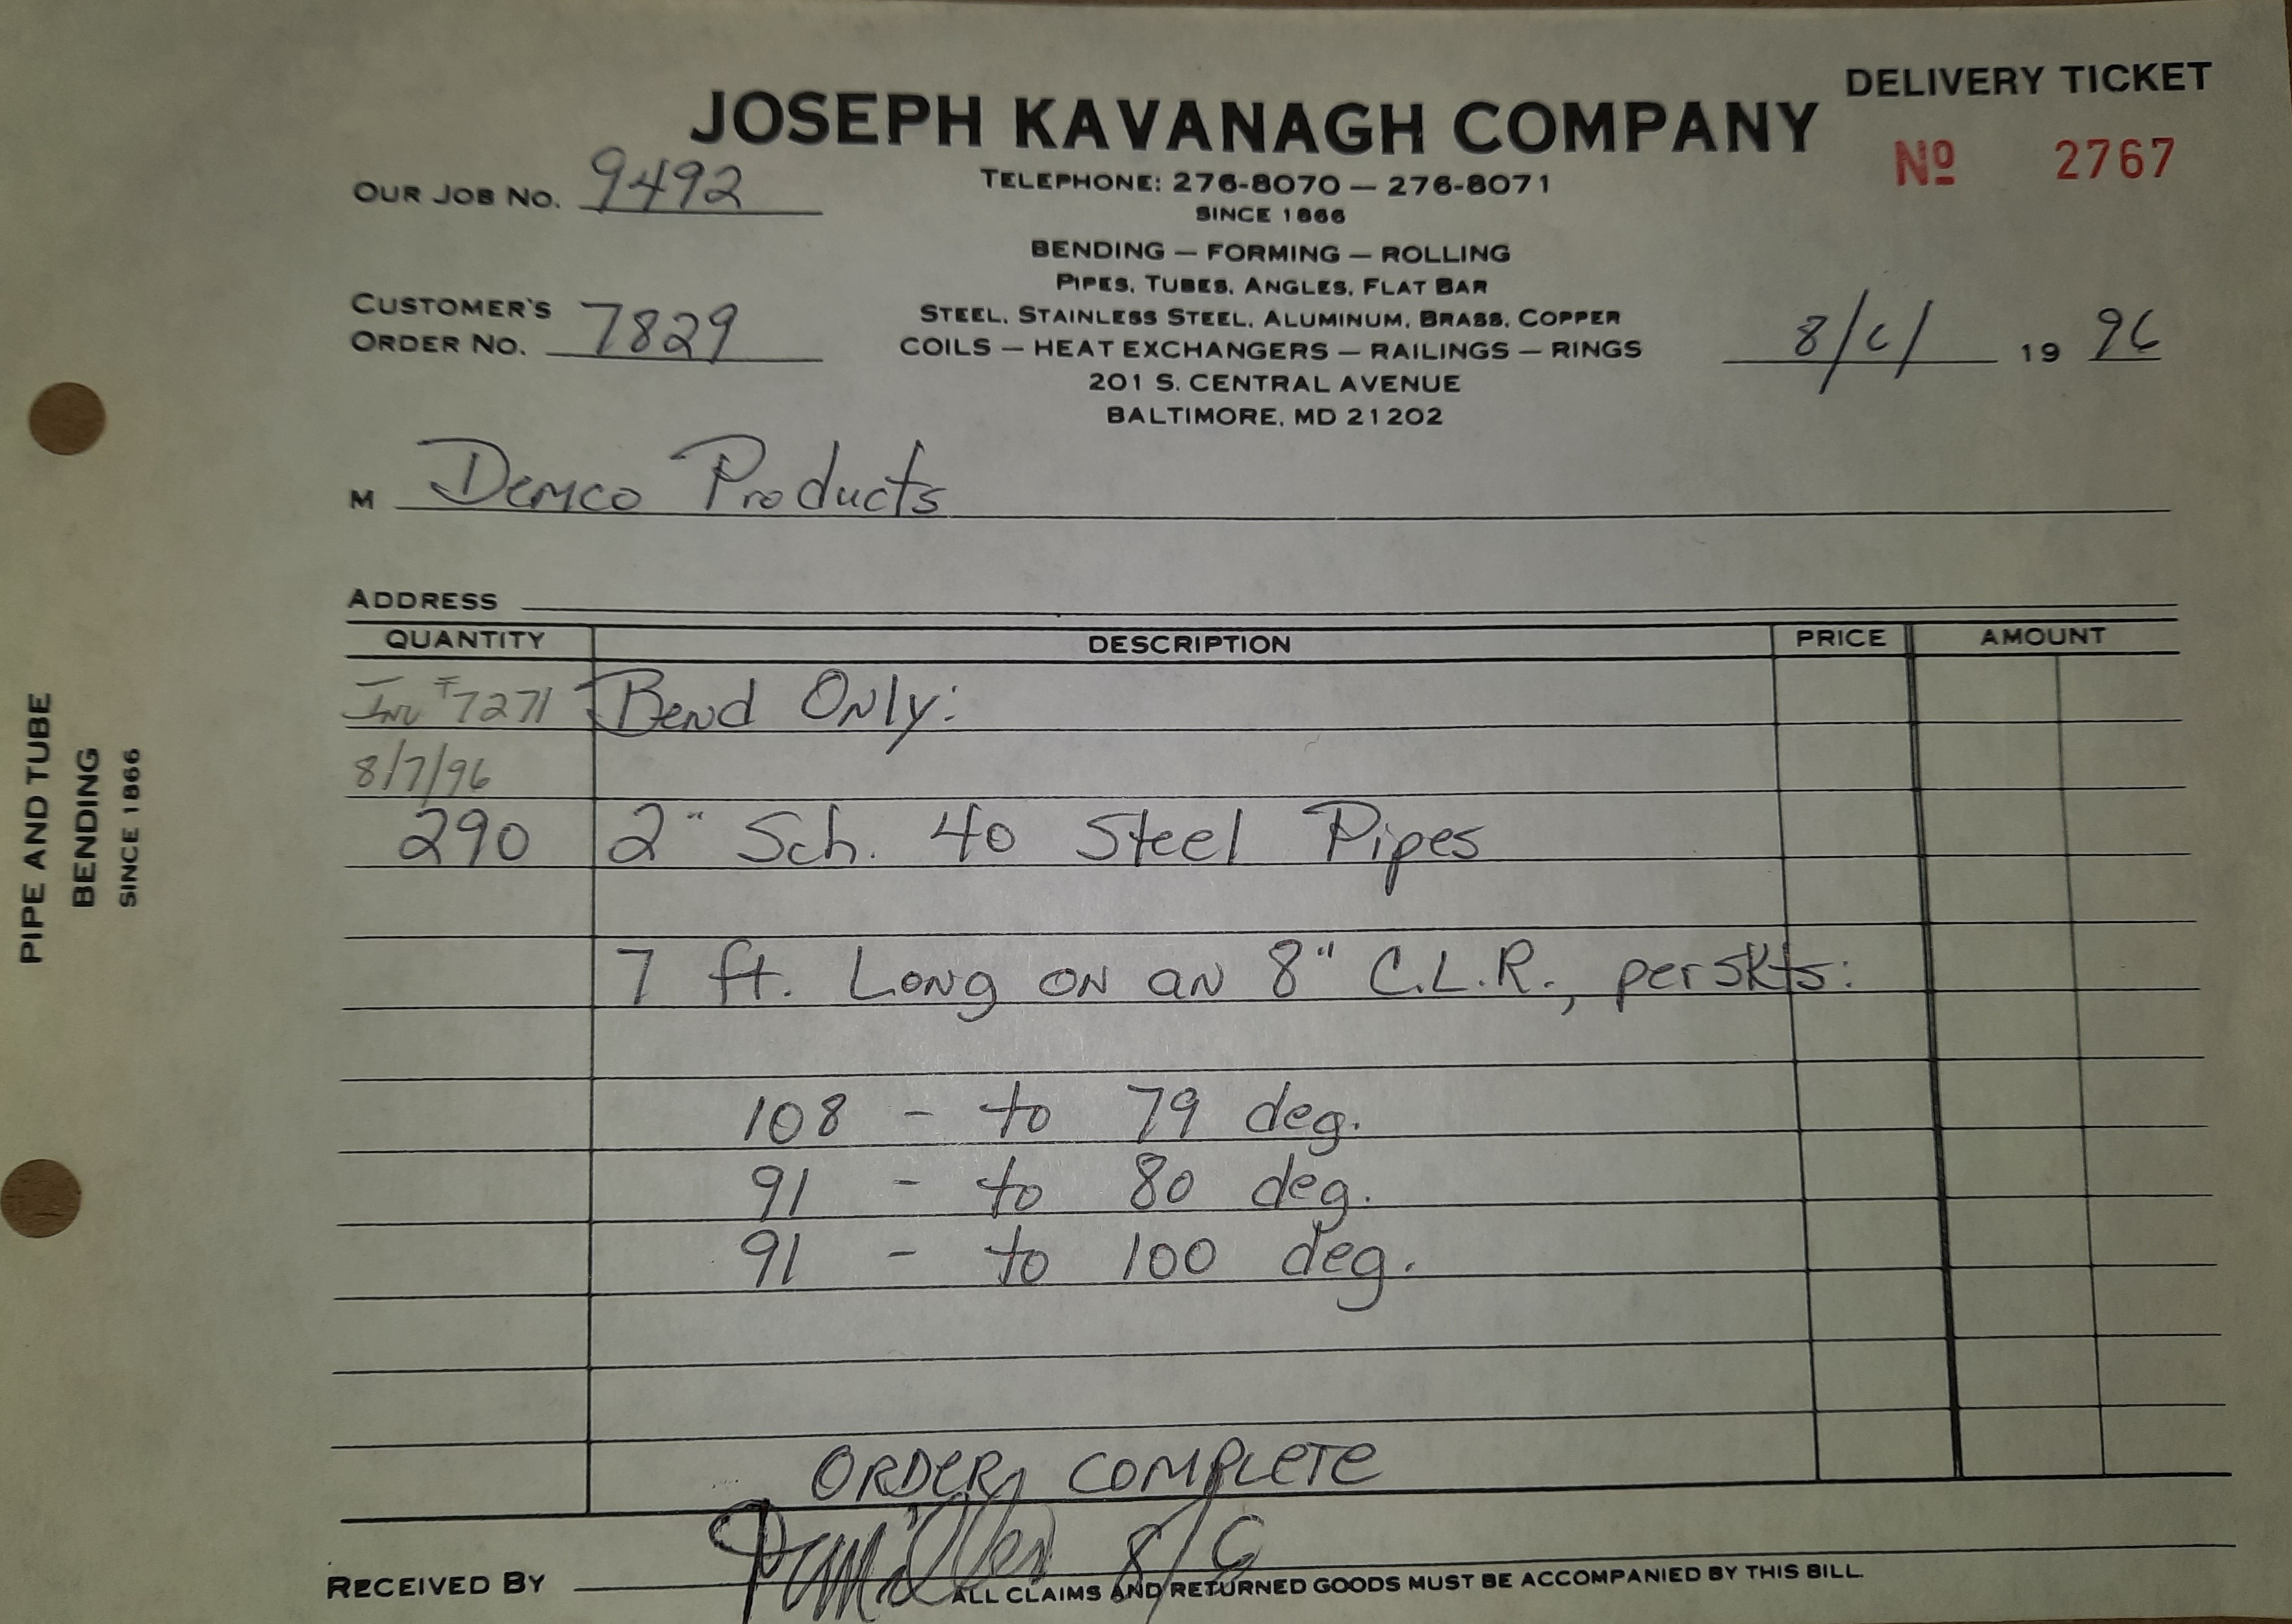 DELIVERY TICKET
JOSEPH KAVANAGH COMPANY
Nº 2767
OUR JOB NO. 9492
TELEPHONE: 276-8070 — 276-8071
SINCE 1866
BENDING — FORMING — ROLLING
PIPES, TUBES, ANGLES, FLAT BAR
CUSTOMER'S
ORDER NO. 7829
STEEL, STAINLESS STEEL, ALUMINUM, BRASS, COPPER
COILS — HEAT EXCHANGERS — RAILINGS — RINGS
8/6/ 19 96
201 S. CENTRAL AVENUE
BALTIMORE, MD 21202
M Demco Products
ADDRESS
QUANTITY DESCRIPTION PRICE AMOUNT
Inv #7271 Bend Only:
8/7/96
290 2" Sch. 40 Steel Pipes
7 ft. Long on an 8" C.L.R., per skts:
108 - to 79 deg.
91 - to 80 deg.
91 - to 100 deg.
ORDER COMPLETE
RECEIVED BY 8/6
ALL CLAIMS AND RETURNED GOODS MUST BE ACCOMPANIED BY THIS BILL.
PIPE AND TUBE
BENDING
SINCE 1866